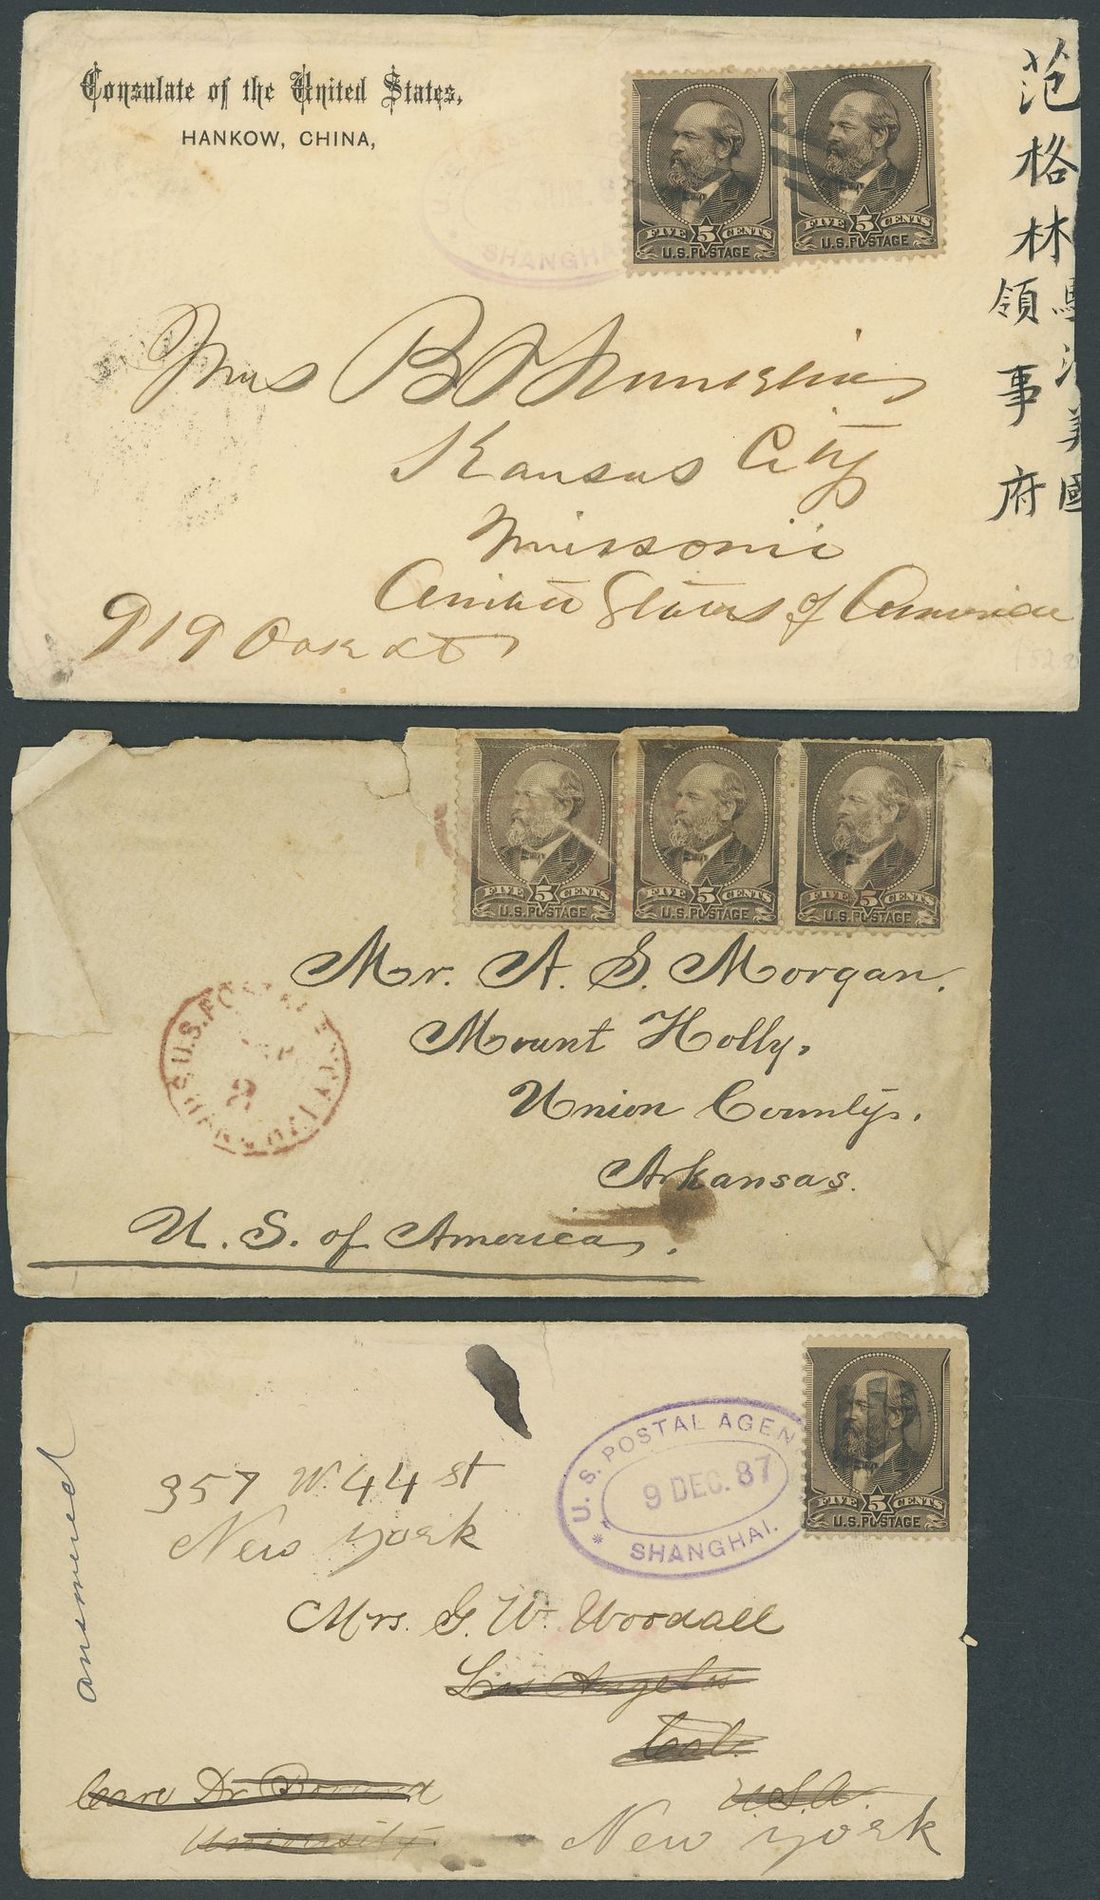 Consulate of the United States,
HANKOW, CHINA,
SHANGHA
FIVE 5 CENTS
U.S. POSTAGE
FIVE 5 CENTS
U.S. POSTAGE
范格林
領事府
美國
Mrs B
Kansas City
Missouri
United States of America
919 Oak St
FIVE 5 CENTS
U.S. POSTAGE
FIVE 5 CENTS
U.S. POSTAGE
FIVE 5 CENTS
U.S. POSTAGE
Mr. A. S. Morgan.
Mount Holly,
Union County.
Arkansas.
U. S. of America.
U.S. POSTAL
FIVE 5 CENTS
U.S. POSTAGE
U. S. POSTAL AGEN
9 DEC. 87
SHANGHAI.
answered
357 W. 44 st
New york
Mrs. G. W. Woodall
Los Angeles
Cal.
U.S.A.
Care Dr
University.
New york